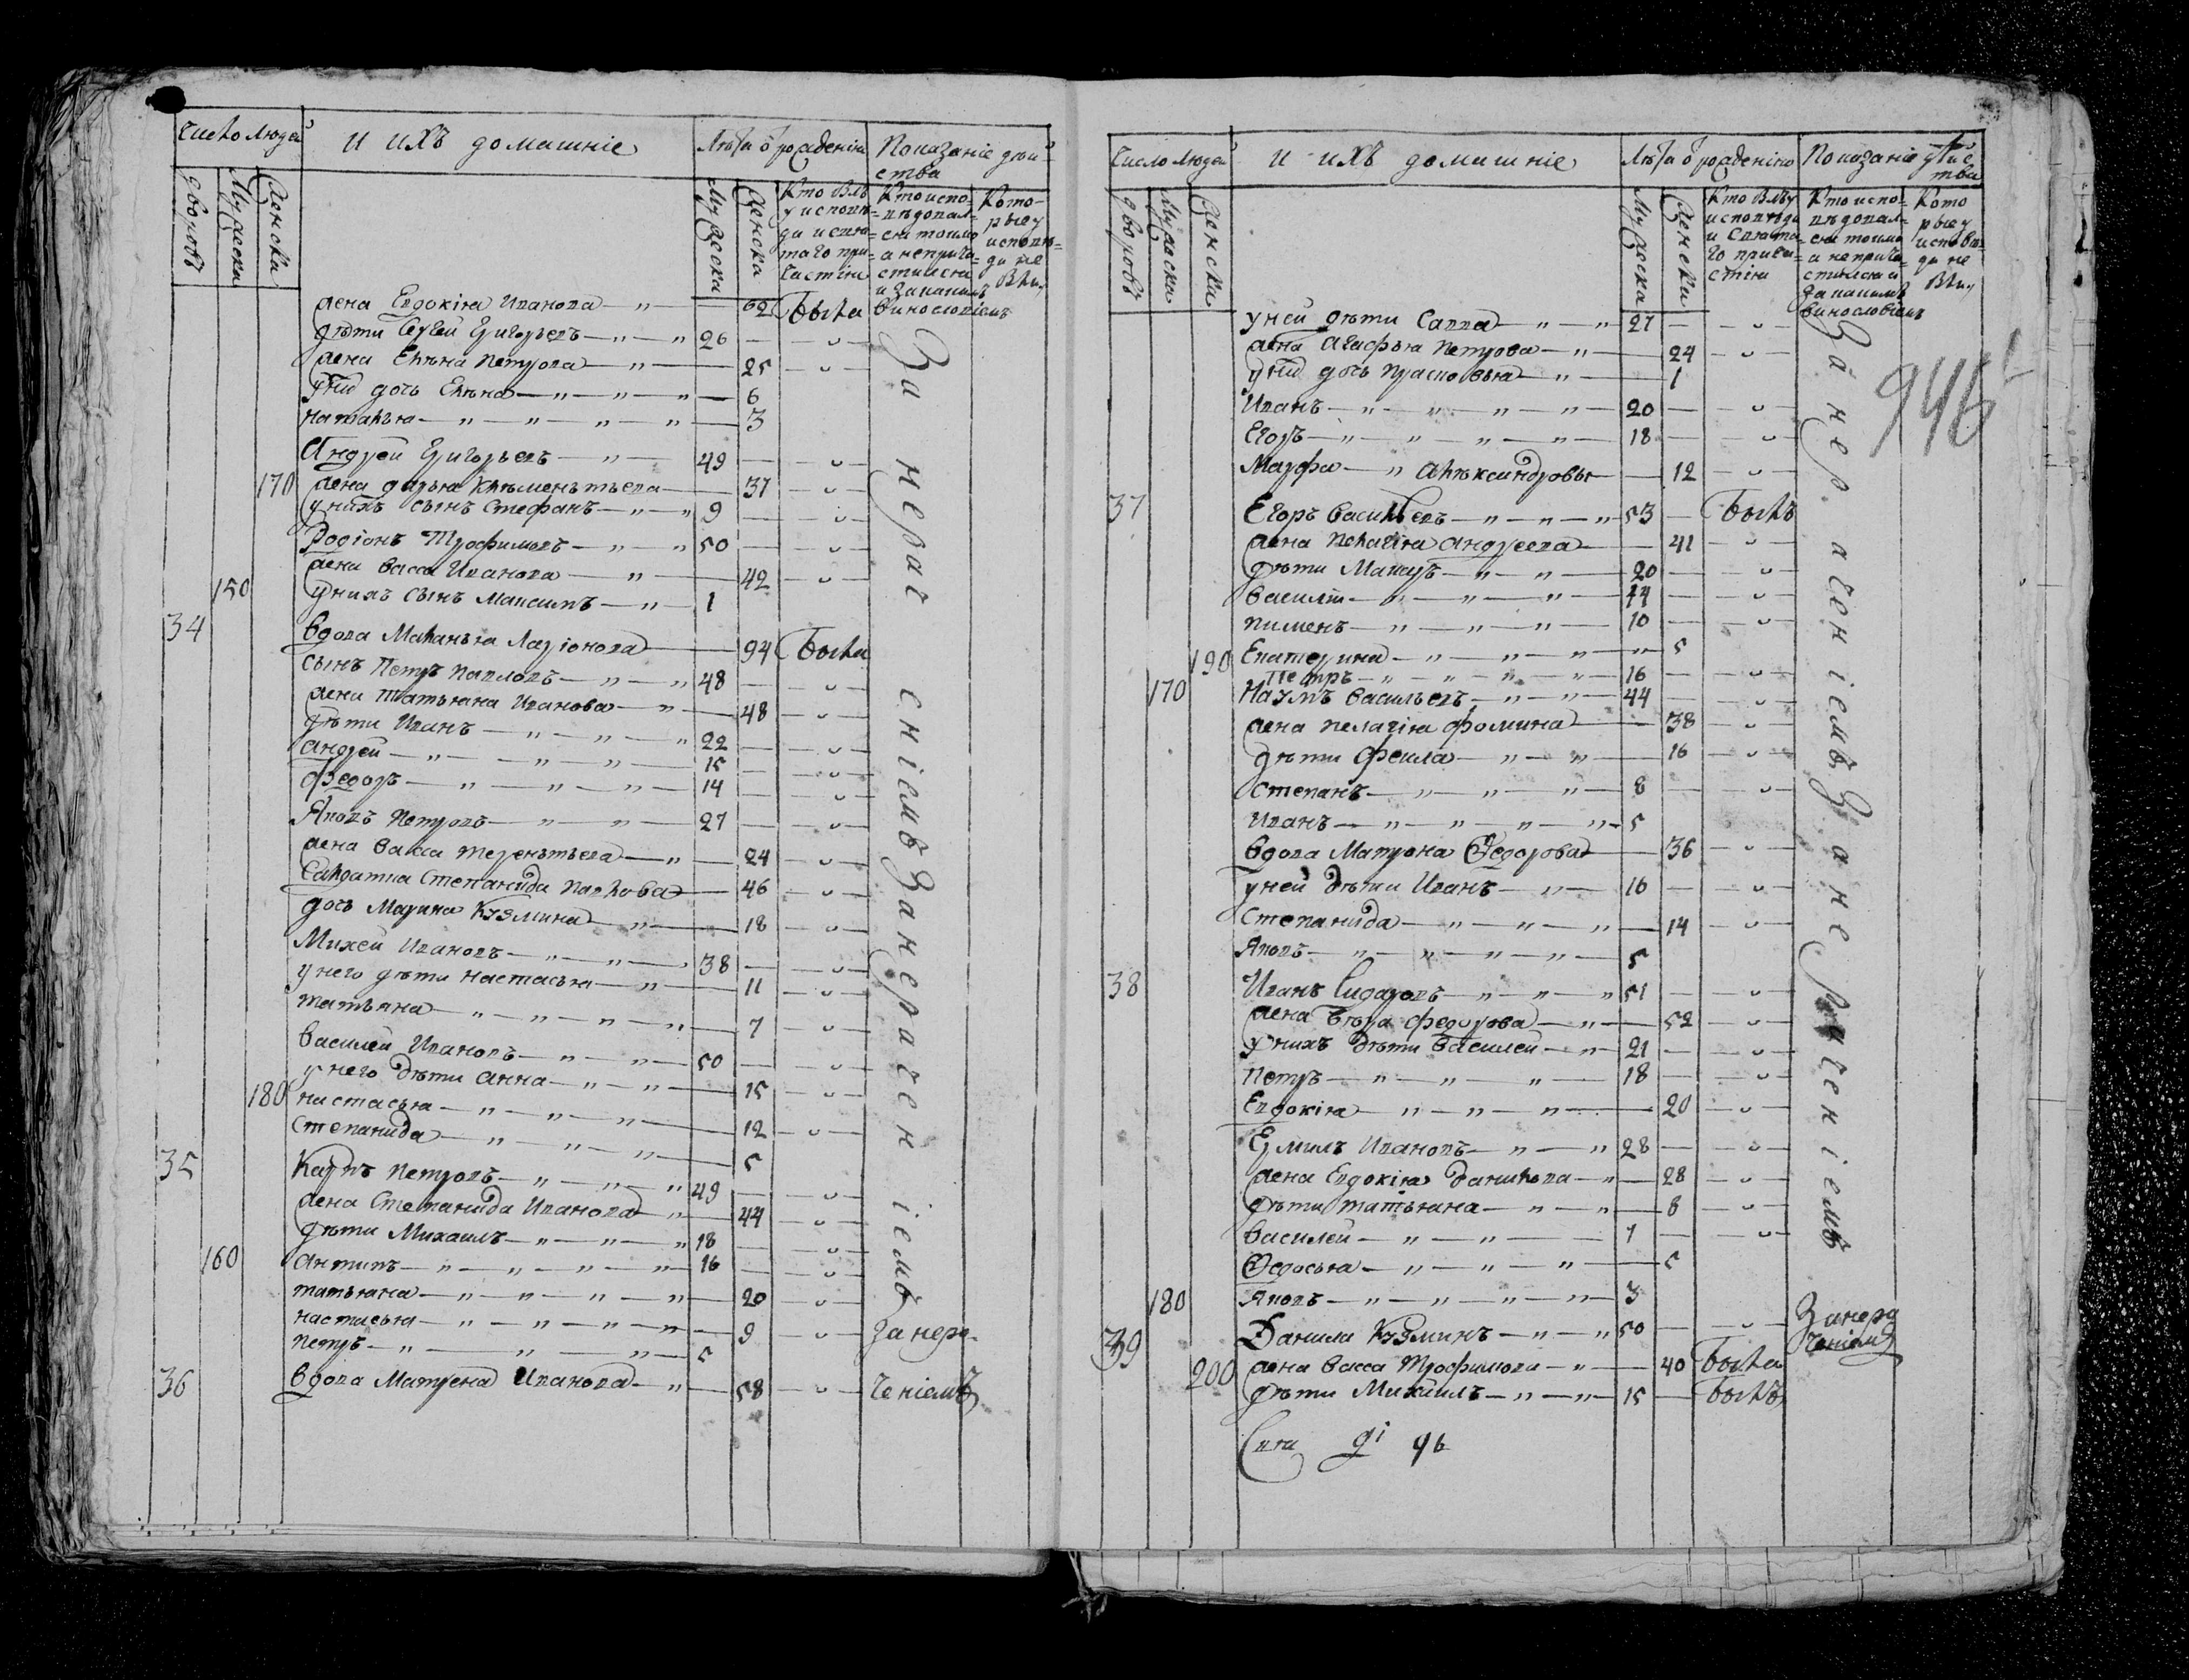 Число людей И ихъ домашніе Лѣта ѿ рожденія Показаніе дѣй-
ства
дворовъ Мужеска Женска Мужеска Женска
Кто былъ
у исповѣ-
ди и свя-
таго при-
частія
Кто испо-
вѣдовал-
ся токмо
а неприча-
стился
и закакимъ
винословіемъ
Кото-
рыеу
исповѣ-
ди не
были
жена Евдокіа Иванова — 62 была
дѣти Сергей Григорьевъ — 26
жена Елѣна Петрова — 25
у нихъ дочь Елѣна — 6
Наталья — 3
Андрей Григорьевъ — 49
170 жена дарья Клѣментьева — 37
у нихъ сынъ Стефанъ — 9
Родіонъ Трофимовъ — 50
жена Васса Иванова — 42
150 у нихъ сынъ Максимъ — 1
34 вдова Маланья Ларіонова — 94 была
сынъ Петръ Павловъ — 48
жена Татьяна Иванова — 48
дѣти Иванъ — 22
андрей — 15
федоръ — 14
Яковъ Петровъ — 27
жена Васса терентьева — 24
Салдатка Степанида Павлова — 46
дочь Марина Кузмина — 18
Михей Ивановъ — 38
у него дѣти настасья — 11
татьяна — 7
Василей Ивановъ — 50
у него дѣти анна — 15
180 настасья — 12
Степанида — 5
35 Карпъ Петровъ — 49
жена Степанида Иванова — 44
дѣти Михаилъ — 18
160 антипъ — 16
татьяна — 20
настасья — 9 Занера-
Петръ — 5
36 вдова Матрена Иванова — 58 ченіемъ
За нераченіемъ За нераченіемъ
Число людей И ихъ домашніе Лѣта ѿ рожденія Показаніе дѣйс
тва
дворовъ Мужеска Женска Мужеска Женска
Кто былъ у
исповѣди
и свята-
го прича-
стія
Кто испо-
вѣдовал-
ся токмо
а неприча-
стился и
закакимъ
винословіемъ
Кото
рыеу
исповѣ-
ди не
были
946
у ней дѣти Савва — 27
жена агафья петрова — 24
у нихъ дочь прасковья — 1
Иванъ — 20
Егоръ — 18
Марфа — алѣксандровы — 12
37 Егоръ Васильевъ — 53 былъ
жена пелагія андреева — 41
дѣти Макаръ — 20
василій — 14
пименъ — 10
190 Екатерина — 5
Петръ — 16
170 Наумъ Васильевъ — 44
жена пелагія фомина — 38
дѣти фекла — 16
Степанъ — 8
Иванъ — 5
вдова Матрона Ѳедорова — 36
у ней дѣти Иванъ — 16
Степанида — 14
Яковъ — 5
38 Иванъ Сидоровъ — 51
жена вѣра федорова — 52
у нихъ дѣти Василей — 21
Петръ — 18
Евдокія — 20
Ермилъ Ивановъ — 28
жена Евдокія данилова — 28
дѣти татьяна — 8
василей — 7
Ѳедосья — 5
180 Яковъ — 3
39 Данила Кузминъ — 50 Занера
ченіемъ
200 жена васса Трофимова — 40 была
дѣти Михаилъ — 15 былъ
За нераченіемъ За нераченіемъ